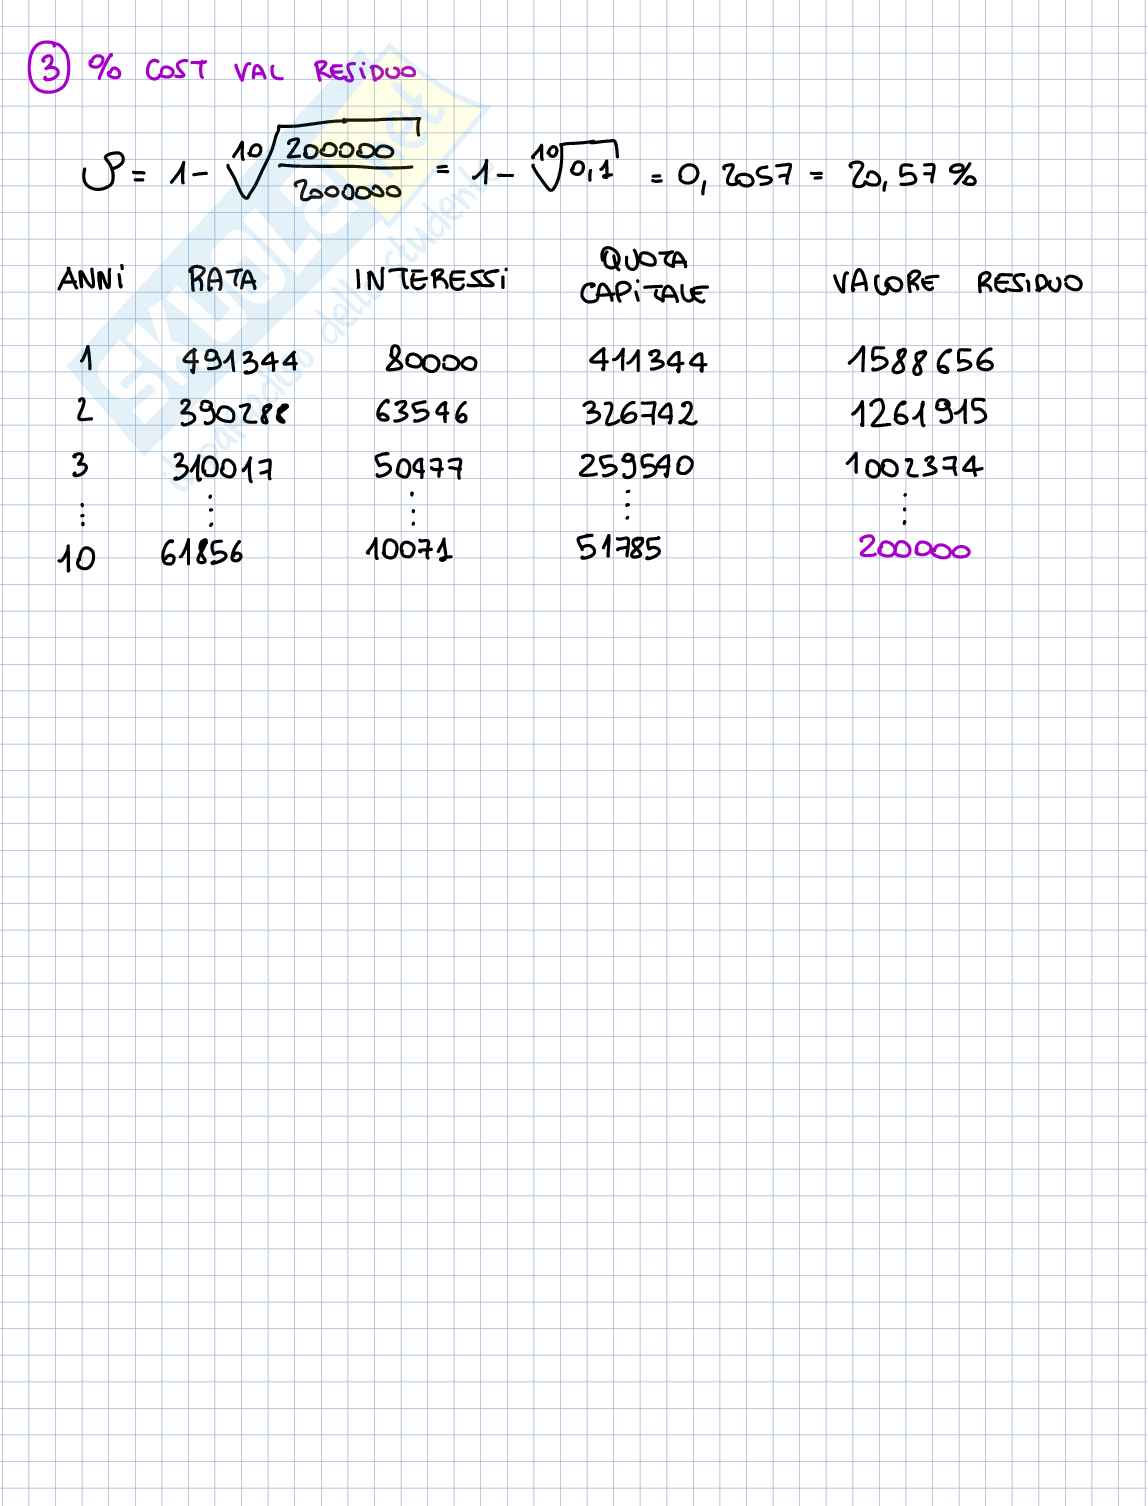 3 % COST VAL RESIDUO
ρ = 1 - ¹⁰√(200000/2000000) = 1 - ¹⁰√0,1 = 0,2057 = 20,57%
ANNI RATA INTERESSI QUOTA CAPITALE VALORE RESIDUO
1 491344 80000 411344 1588656
2 390288 63546 326742 1261915
3 310017 50477 259540 1002374
⋮ ⋮ ⋮ ⋮ ⋮
10 61856 10071 51785 200000
SKUOLA.net